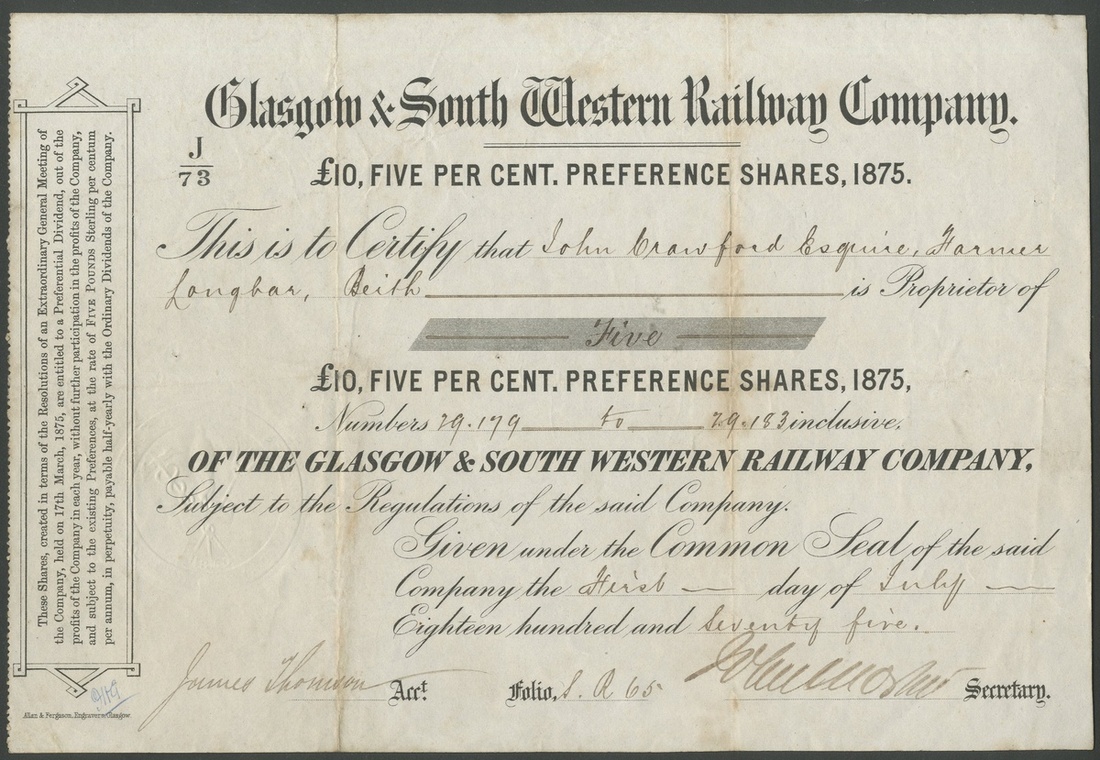 These Shares, created in terms of the Resolutions of an Extraordinary General Meeting of
the Company, held on 17th March, 1875, are entitled to a Preferential Dividend, out of the
profits of the Company in each year, without further participation in the profits of the Company,
and subject to the existing Preferences, at the rate of FIVE POUNDS Sterling per centum
per annum, in perpetuity, payable half-yearly with the Ordinary Dividends of the Company.
Glasgow & South Western Railway Company.
J
73
£10, FIVE PER CENT. PREFERENCE SHARES, 1875.
This is to Certify that John Crawford Esquire, Farmer
Longbar, Beith is Proprietor of
Five
£10, FIVE PER CENT. PREFERENCE SHARES, 1875,
Numbers 29.179 to 29.183 inclusive.
OF THE GLASGOW & SOUTH WESTERN RAILWAY COMPANY,
Subject to the Regulations of the said Company.
Given under the Common Seal of the said
Company the First day of July
Eighteen hundred and Seventy five.
James Thomson Acct. Folio, S. R 65 Secretary.
Allan & Ferguson, Engravers, Glasgow.